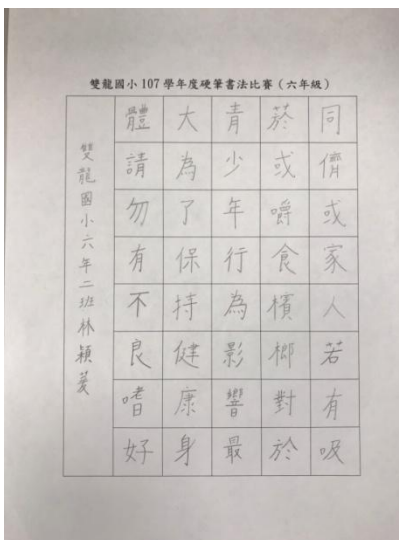 雙龍國小107學年度硬筆書法比賽（六年級）
同儕或家人若有吸
菸或嚼食檳榔對於
青少年行為影響最
大為了保持健康身
體請勿有不良嗜好
雙龍國小六年二班林穎蔆